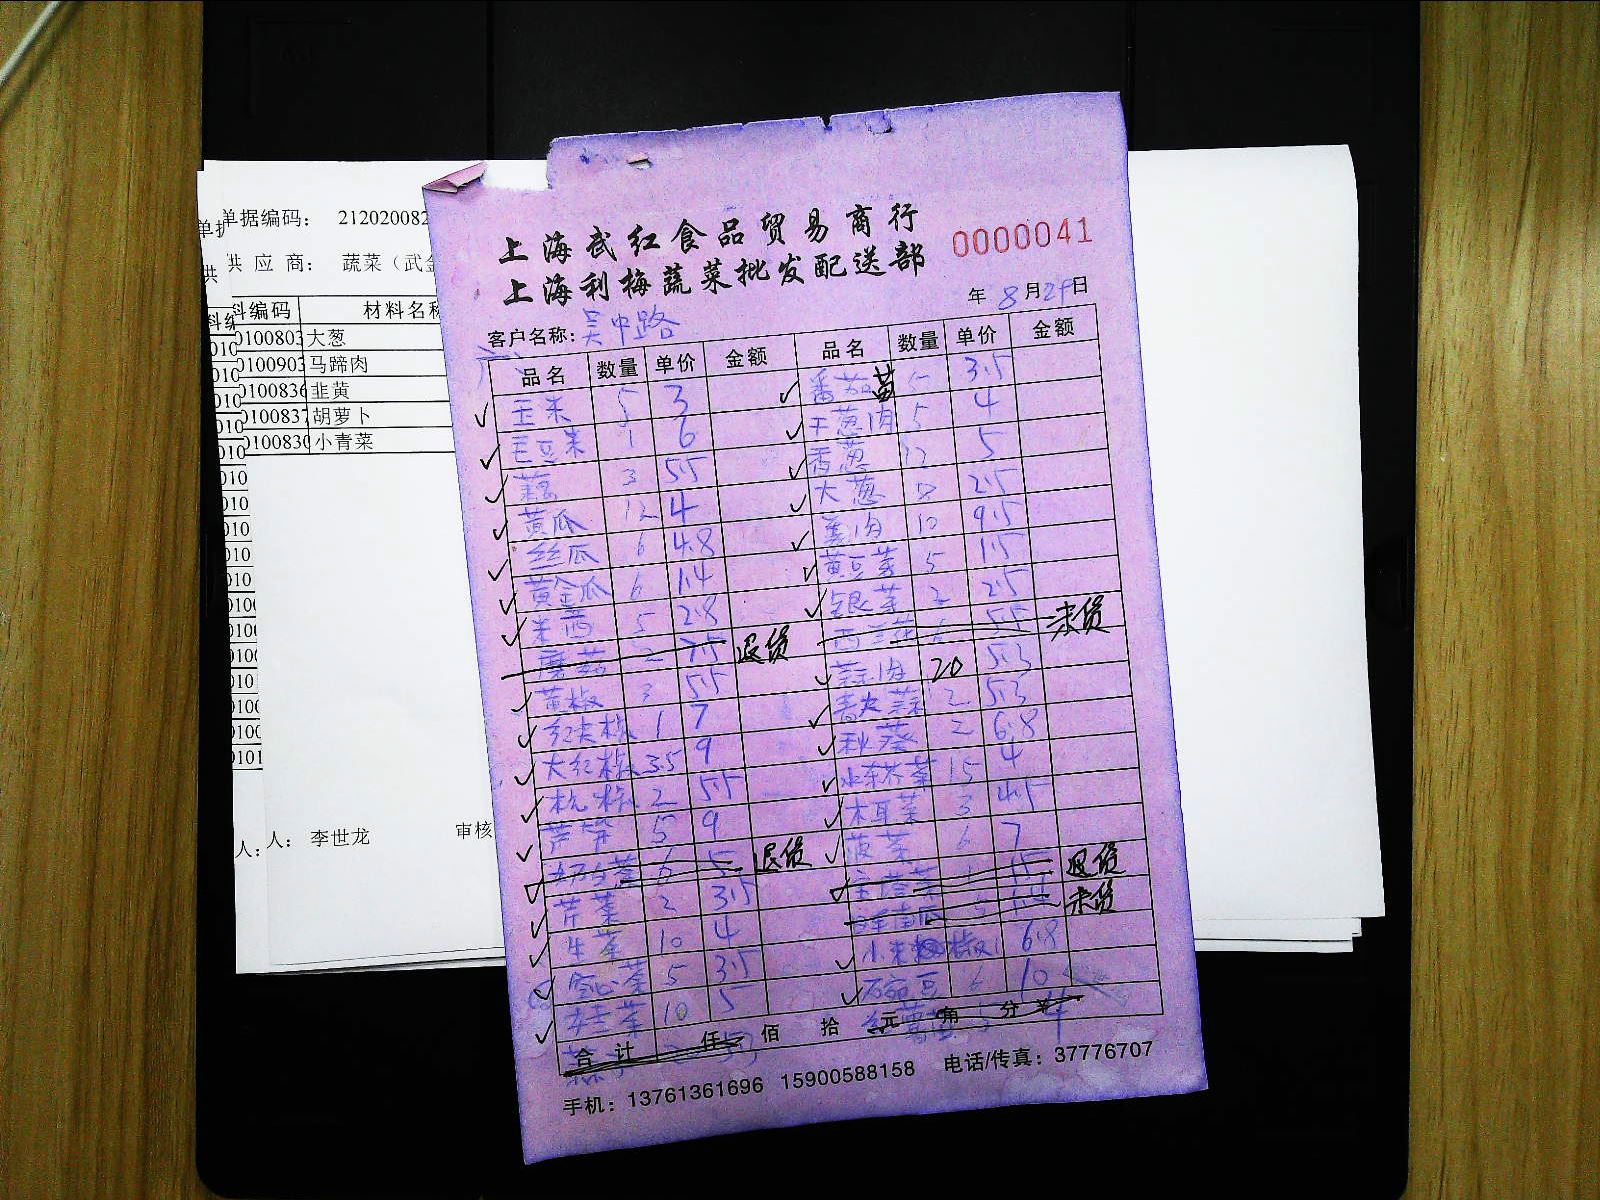 单据编码： 212020082
供 应 商： 蔬菜（武金
料编码 材料名称
0100803 大葱
0100903 马蹄肉
0100836 韭黄
0100837 胡萝卜
0100830 小青菜
人： 李世龙 审核
上海武红食品贸易商行
上海利梅蔬菜批发配送部
0000041
年 8月29日
客户名称：吴中路
品名 数量 单价 金额 品名 数量 单价 金额
玉米 5 3 番茄 3.5
毛豆米 1 6 干葱肉 5 4
藕 3 5.5 香葱 12 5
黄瓜 12 4 大葱 2.5
丝瓜 6 4.8 姜肉 10 9.5
黄金瓜 6 1.4 黄豆芽 5 1.5
米茜 5 2.8 银芽 2 2.5
蘑菇 2 7.5 退货 西兰花 6 5.5 未货
黄椒 3 5.5 蒜肉 20 5.3
红尖椒 1 7 2 5.3
大红椒 3.5 9 秋葵 2 6.8
杭椒 2 5.5 水东芥菜 15 4
芦笋 5 9 木耳菜 3 4.5
奶白菜 6 5 退货 菠菜 6 7
芹菜 2 3.5 退货
生菜 10 4 南瓜 未货
空心菜 5 3.5 小米椒 1 6.8
10 5 荷兰豆 6 10
合 计 仟 佰 拾 元 角 分
手机：13761361696 15900588158 电话/传真：37776707